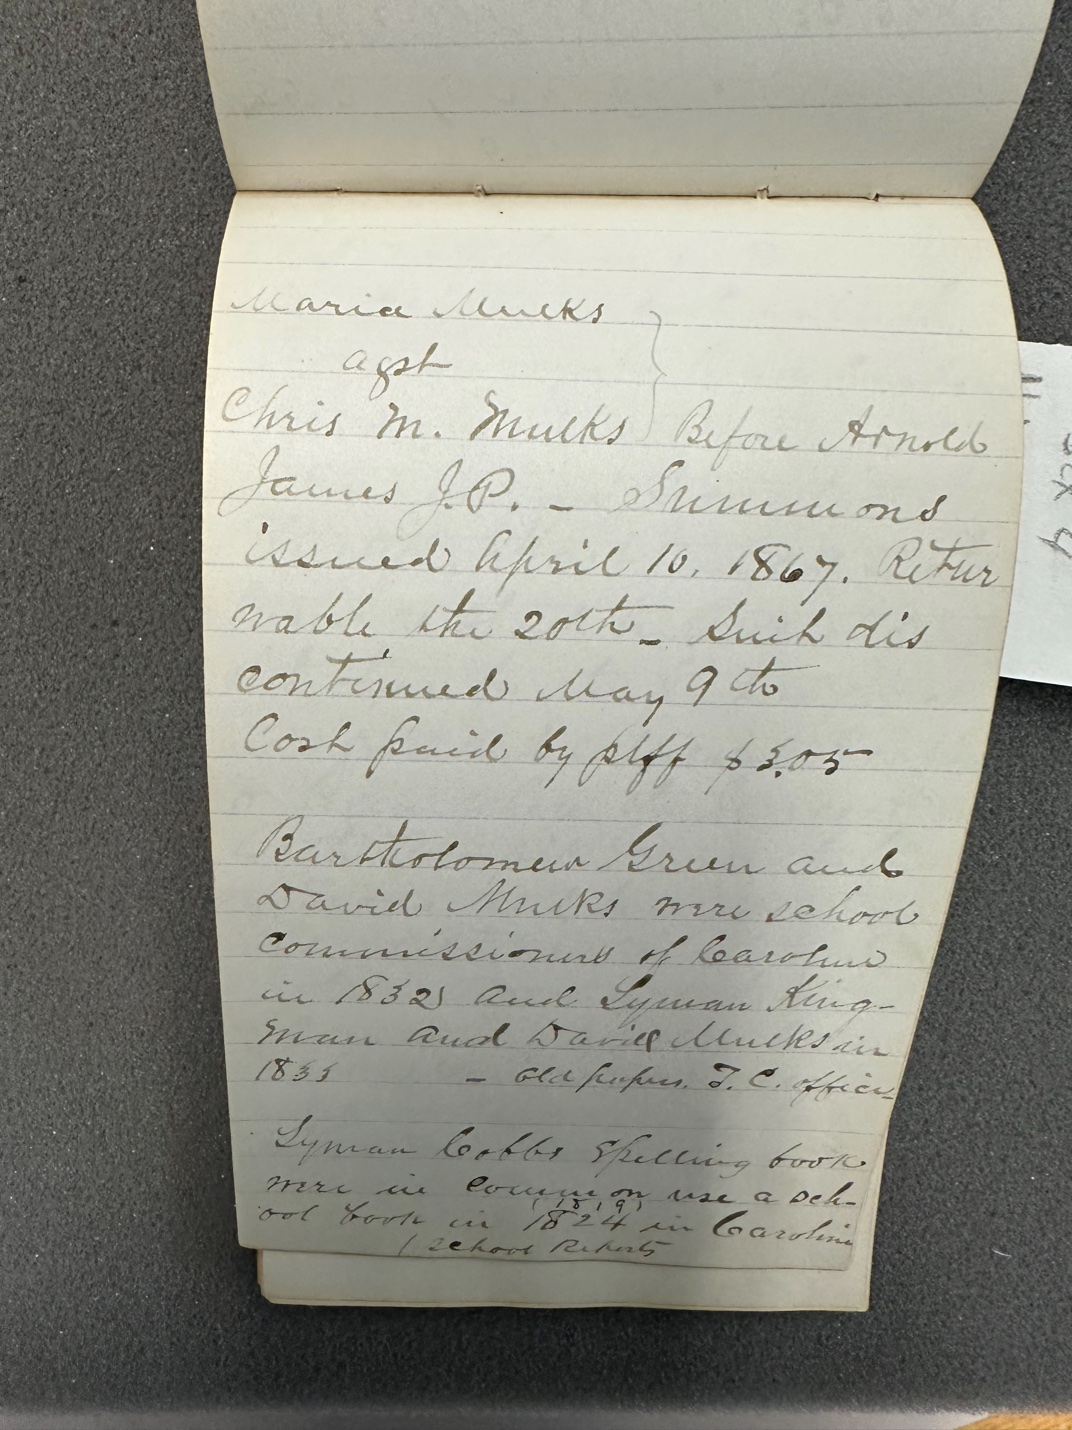 Maria Mulks
agst
Chris M. Mulks } Before Arnold
James J.P. - Summons
issued April 10, 1867. Retur
nable the 20th - Suit dis
continued May 9th
Cost paid by plff $3.05
Bartholomew Green and
David Mulks were school
commissioners of Caroline
in 1832 and Lyman King-
man and David Mulks in
1833 - old papers. T. C. office-
Lyman Cobbs Spelling book
were in common use a sch-
(1819)
ool book in 1824 in Caroline
(School Reports